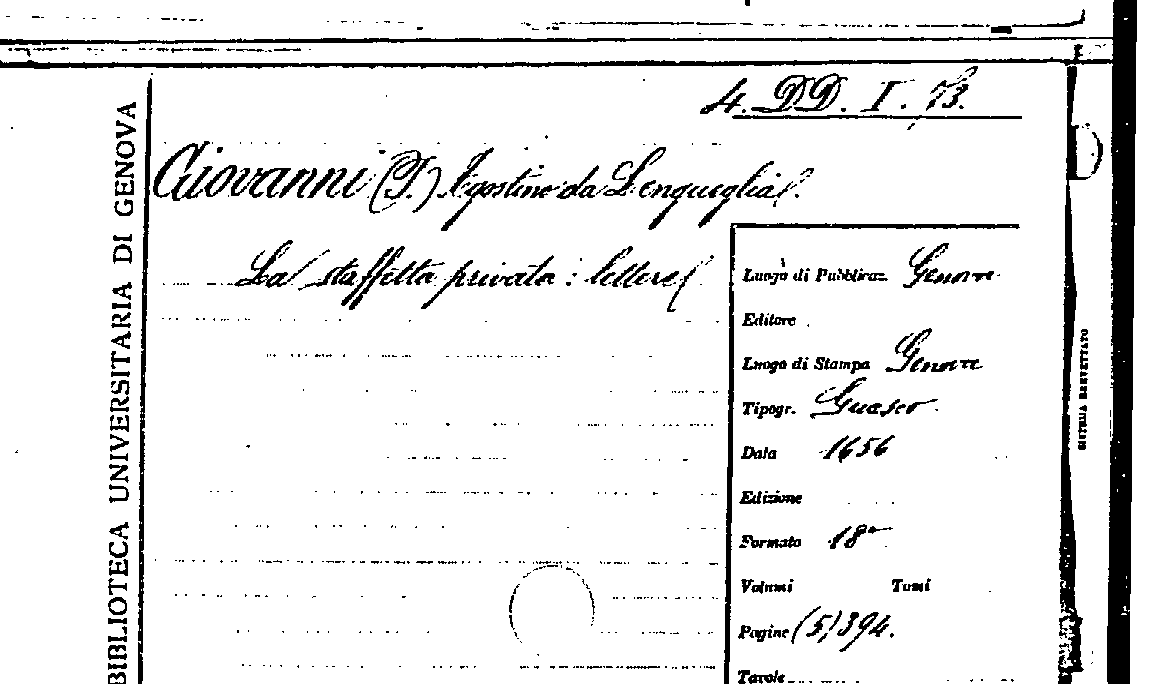 4. DD. I. 73.
Giovanni (P.) Agostino da Lengueglia.
La staffetta privata: lettere
Luogo di Pubblicaz. Genova
Editore
Luogo di Stampa Genova
Tipogr. Guasco
Data 1656
Edizione
Formato 18º
Volumi Tomi
Pagine (5) 394.
Tavole
BIBLIOTECA UNIVERSITARIA DI GENOVA
SISTEMA BREVETTATO